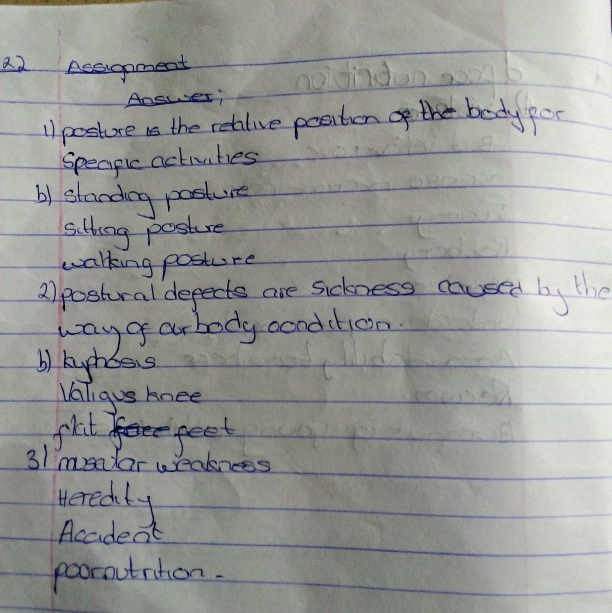 22 Assignment
Answer;
1) posture is the relative position of the body for
Specific activities
b) standing posture
sitting posture
walking posture
2) postural defects are sickness caused by the
way of our body condition.
b) kyphosis
Valigus knee
flat feet
3) muscular weakness
Heredity
Accident
poor nutrition -